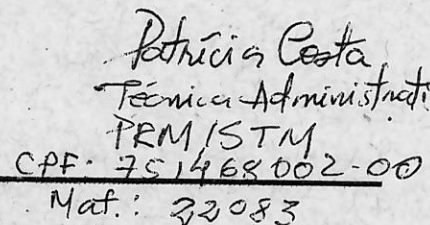 Patrícia Costa
Técnica Administrati
PRM/STM
CPF: 751468002-00
Mat.: 22083